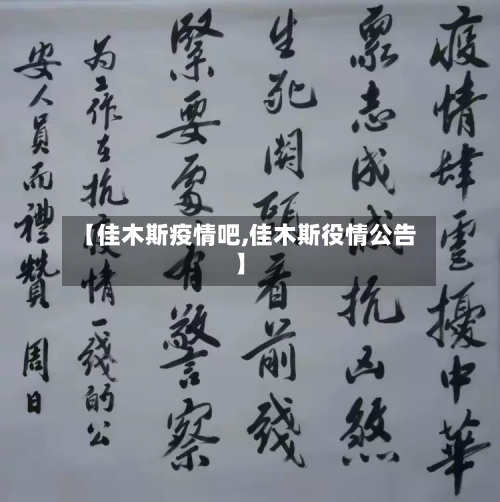 疫情肆虐擾中華
眾志成城抗凶煞
生死關頭看前綫
緊要處有警察
为工作在抗疫情一綫的公
安人員而禮贊 周日
【佳木斯疫情吧,佳木斯役情公告
】